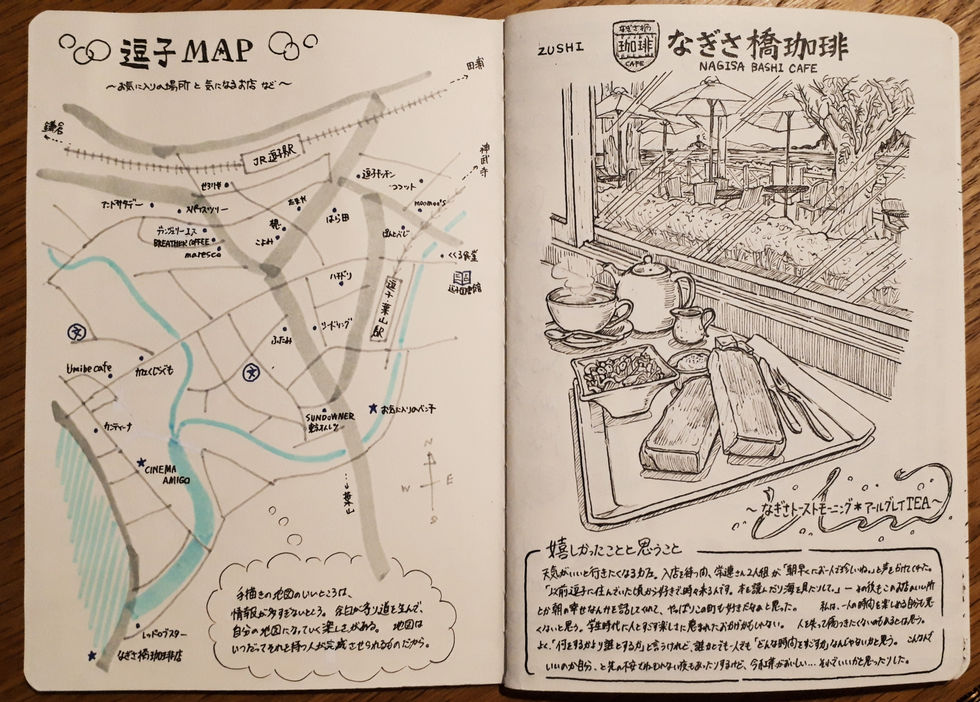 逗子 MAP
～お気に入りの場所 と 気になるお店 など～
田浦
鎌倉
JR逗子駅
神武寺
逗子キッチン
アンドサタデー
スパイスツリー
たまや
はら田
moomoo's
BREATHER COFFEE
maresco
こよみ
くくる食堂
逗子図書館
ハチドリ
逗子・葉山駅
リードリング
ふたみ
文
文
Umibe cafe
かえるくじらぐも
SUNDOWNER
お気に入りのベンチ
カンティーナ
CINEMA
AMIGO
N
W E
S
…↓葉山
手描きの地図のいいところは、
情報が多すぎないところ。余白が寄り道を生んで、
自分の地図になっていく楽しさがある。 地図は
いつだってそれを持つ人が完成させられるものだから。
レッドロブスター
なぎさ橋珈琲店
ZUSHI
なぎさ橋
珈琲
CAFE
なぎさ橋珈琲
NAGISA BASHI CAFE
～なぎさトーストモーニング＊アールグレイTEA～
嬉しかったことと思うこと
天気がいいと行きたくなるカフェ。入店を待つ間、常連さん2人組が「朝早くにお一人で珍しいね。」と声をかけてくれた。
「以前逗子に住んでいた頃から好きで時々来るんです。本を読んだり海を見たりして。」― その後もこのお店のいい所
とか朝の幸せなんかを話してくれて、やっぱりこの町も好きだなあと思った。 私は、一人の時間を楽しめる自分も悪
くないと思う。学生時代に人とすごす楽しさに恵まれたおかげかもしれない。 人を失って傷つきたくないのもあるとは思う。
よく、「何をするより誰とするか」と言うけれど、誰かとでも一人でも「どんな時間をすごすか」なんじゃないかと思う。 こんなんで
いいのか自分、と先の不安でねむれない夜もあったりするけど、今紅茶がおいしい…それでいいかと思ったりした。